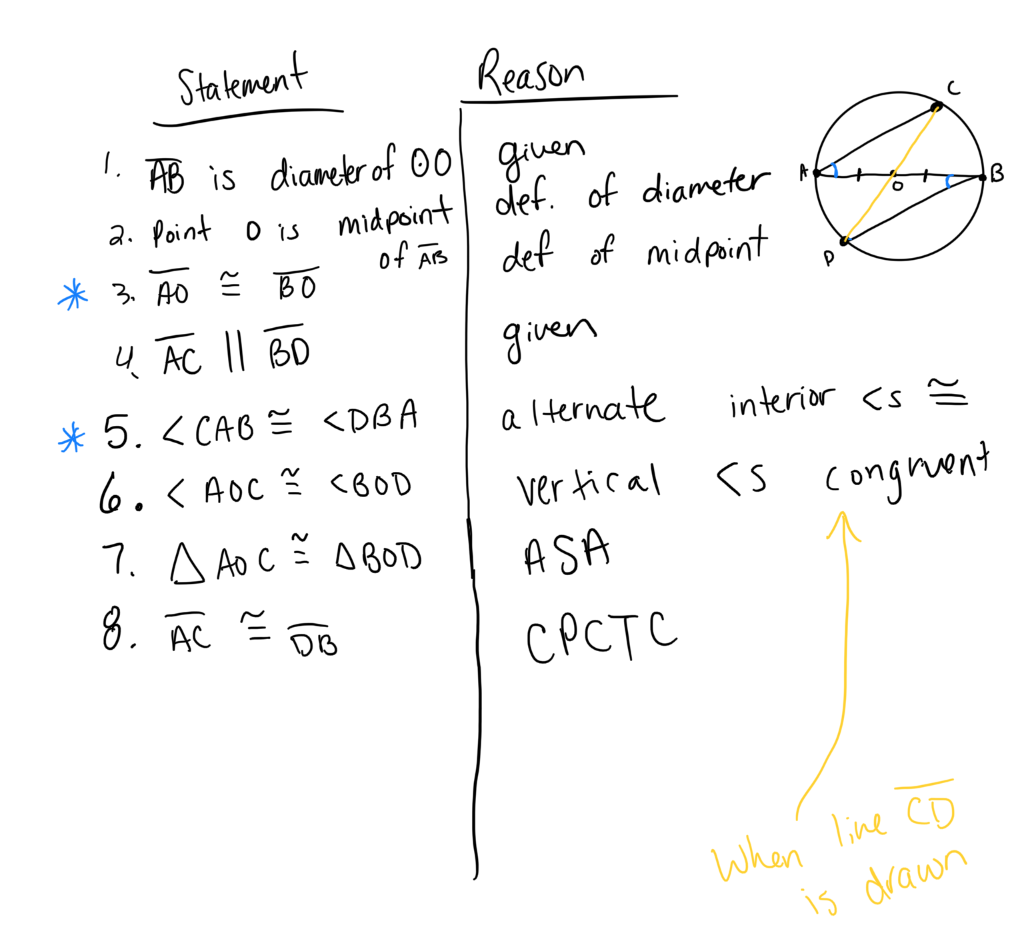 Statement
Reason
1. AB is diameter of OO
given
2. Point O is midpoint of AB
def. of diameter
* 3. AO ≅ BO
def of midpoint
4. AC || BD
given
* 5. <CAB ≅ <DBA
alternate interior <s ≅
6. < AOC ≅ <BOD
vertical <s congruent
7. △ AOC ≅ △BOD
ASA
8. AC ≅ DB
CPCTC
When line CD
is drawn
C
A
O
B
D